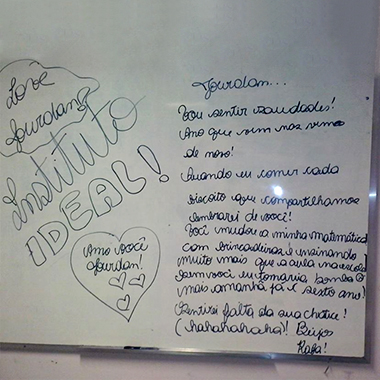 Love
Jourdan
Instituto
IDEAL!
Amo você
Jourdan!
Jourdan...
Vou sentir saudades!
Ano que vem nos vemos
de novo!
Quando eu comer cada
biscoito que compartilhamos
lembrarei de você!
Você mudou a minha matemática
com brincadeiras e ensinando
muito mais que a aula na escola
sem você eu tomaria bomba
mais amanhã já é sexto ano!
Sentirei falta da sua chatice!
(hahahahaha)! Beijos
Rafa!